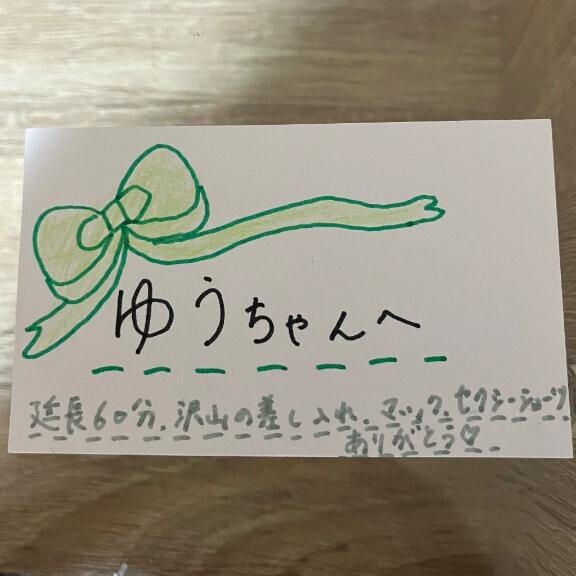 ゆうちゃんへ
延長60分、沢山の差し入れ、マック、セクシーショーツ
ありがとう♡